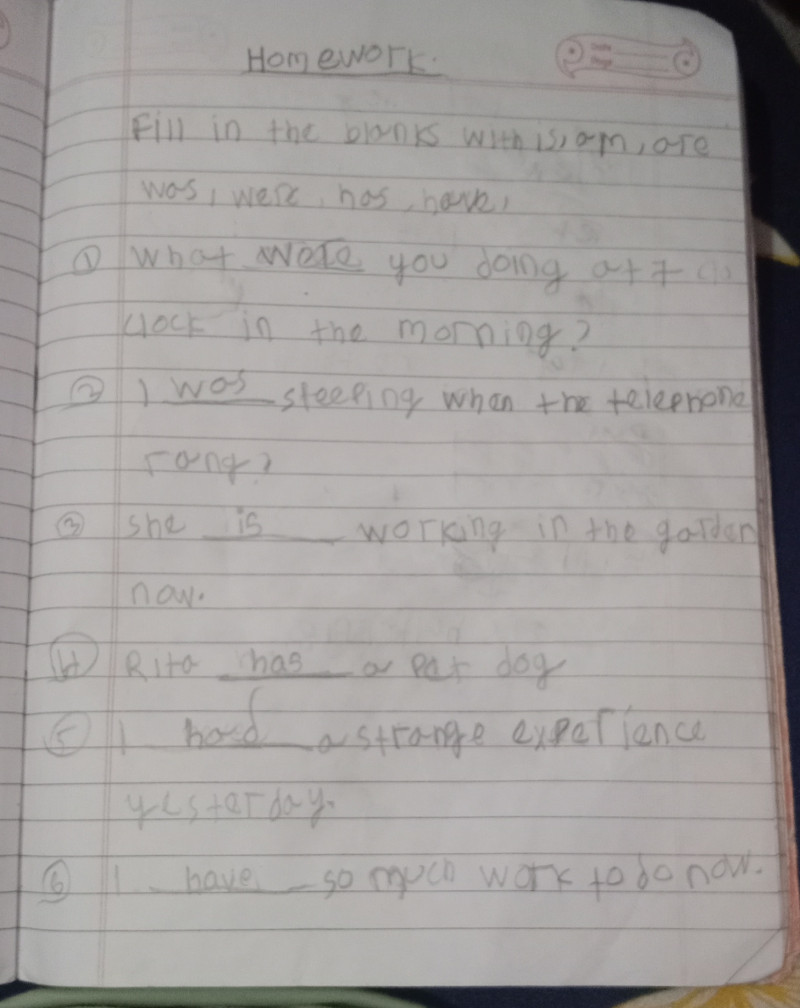 Homework.
Date
Page
Fill in the blanks with is, am, are
was, were, has, have,
① What were you doing at 7 o
clock in the morning?
② I was sleeping when the telephone
rang?
③ she is working in the garden
now.
④ Rita has a pet dog
⑤ I had a strange experience
yesterday.
⑥ I have so much work to do now.